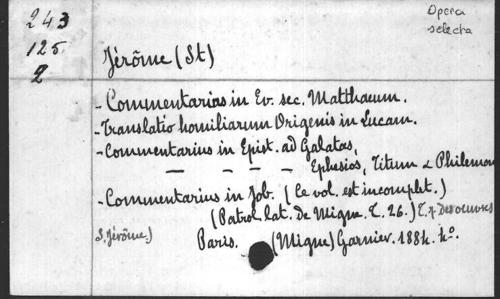 243
125
2
Opera
selecta
Jérôme (St)
- Commentarius in Ev. sec. Matthaeum.
- Translatio homiliarum Origenis in Lucam.
- Commentarius in Epist. ad Galatas,
— — — — Ephesios, Titum & Philemon
- Commentarius in Job. (Ce vol. est incomplet.)
(Patrol. lat. de Migne. T. 26.) T. 7 Des oeuvres
S. Jérôme.)
Paris. (Migne) Garnier. 1884. 4o.